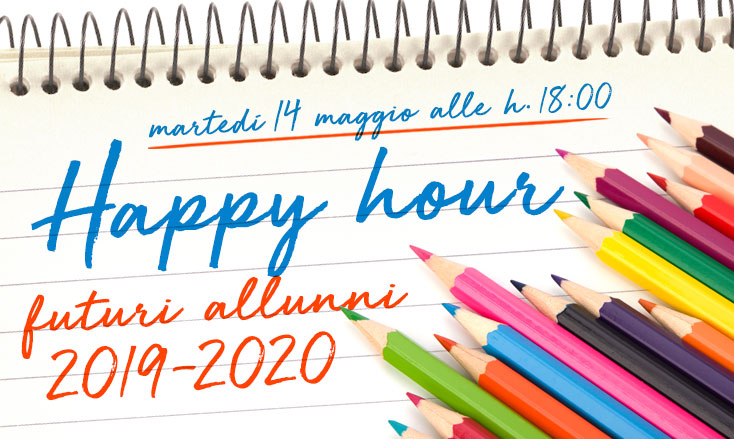 martedí 14 maggio alle h. 18:00
Happy hour
futuri allunni
2019-2020